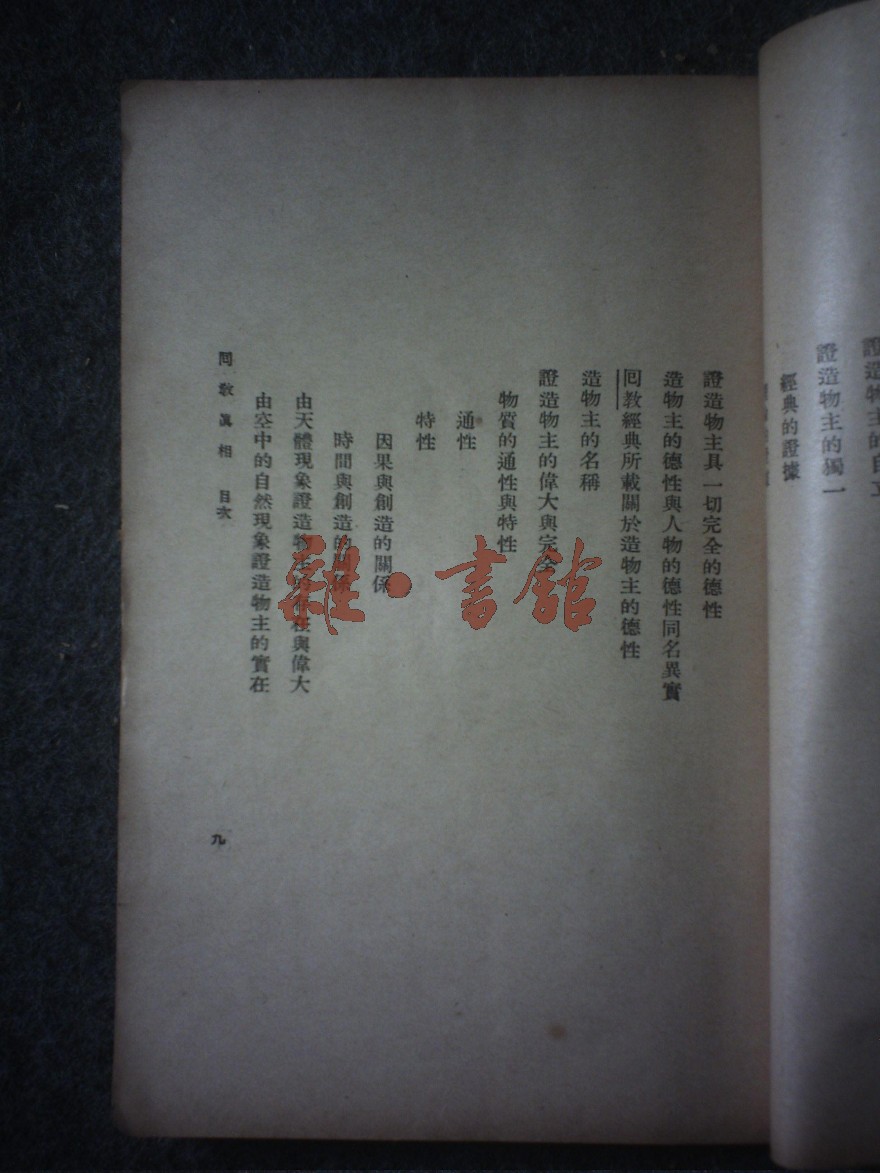 證造物主的獨一
經典的證據
證造物主具一切完全的德性
造物主的德性與人物的德性同名異實
囘教經典所載關於造物主的德性
造物主的名稱
證造物主的偉大與完全
物質的通性與特性
通性
特性
因果與創造的關係
時間與創造的關係
由天體現象證造物主的存在與偉大
由空中的自然現象證造物主的實在
囘教眞相 目次
九
雜·書館